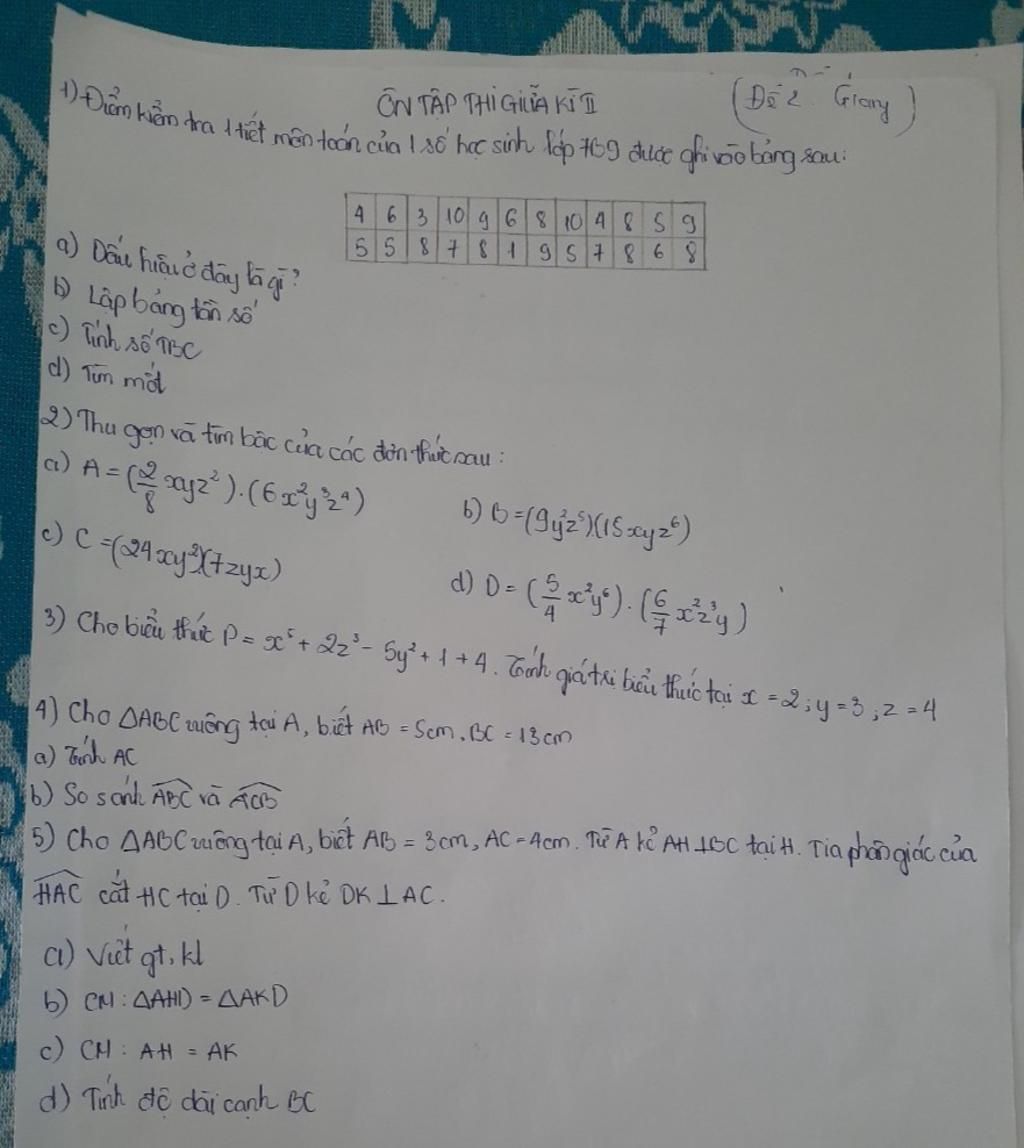 ÔN TẬP THI GIỮA KÌ II
(Đề 2. Giang)
1) Điểm kiểm tra 1 tiết môn toán của 1 số học sinh lớp 7G9 được ghi vào bảng sau:
4 6 3 10 9 6 8 10 4 8 5 9
5 5 8 7 8 1 9 5 7 8 6 8
a) Dấu hiệu ở đây là gì?
b) Lập bảng tần số
c) Tính số TBC
d) Tìm mốt
2) Thu gọn và tìm bậc của các đơn thức sau:
a) A = (2/8 xyz²).(6x²y³z⁴)
b) B = (9y²z⁵)(15xyz⁶)
c) C = (24xy²)(7zyx)
d) D = (5/4 x²y⁶).(6/7 x²z³y)
3) Cho biểu thức P = x⁵ + 2z³ - 5y² + 1 + 4. Tính giá trị biểu thức tại x = 2; y = 3; z = 4
4) Cho ΔABC vuông tại A, biết AB = 5cm, BC = 13cm
a) Tính AC
b) So sánh ABC và ACB
5) Cho ΔABC vuông tại A, biết AB = 3cm, AC = 4cm. Từ A kẻ AH ⊥ BC tại H. Tia phân giác của
HAC cắt HC tại D. Từ D kẻ DK ⊥ AC.
a) Viết gt, kl
b) CM: ΔAHD = ΔAKD
c) CM: AH = AK
d) Tính độ dài cạnh BC